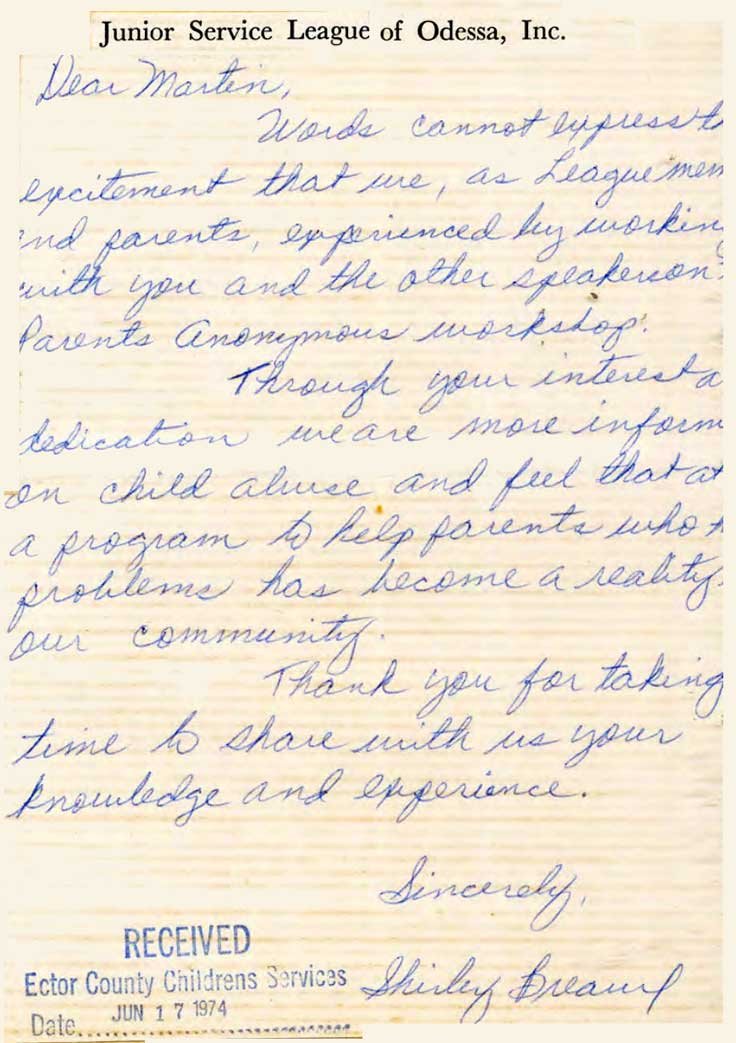 Junior Service League of Odessa, Inc.
Dear Martin,
Words cannot express t
excitement that we, as League mem
nd parents, experienced by workin
with you and the other speakers on
Parents Anonymous workshop.
Through your interest a
dedication we are more inform
on child abuse and feel that at
a program to help parents who
problems has become a reality
our community.
Thank you for taking
time to share with us your
knowledge and experience.
Sincerely,
Shirley
RECEIVED
Ector County Childrens Services
JUN 17 1974
Date